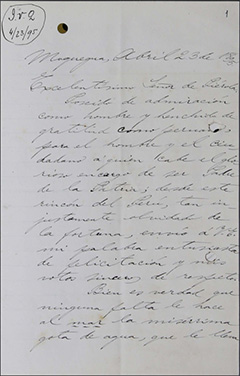 I v 2
4/23/95
1
Moquegua, Abril 23 de
Excelentísimo Señor de Piérola
Poseído de admiración
como hombre y henchido de
gratitud como peruano,
para el hombre y el ciu
dadano a quien cabe el glo
rioso encargo de ser Salva
de la Patria; desde este
rincón del Perú, tan in
justamente olvidado de
la fortuna, envío a V.E.
mi palabra entusiasta
de felicitación y mis
votos sinceros de respeto.
Bien es verdad que
ninguna falta le hace
al mar la misérrima
gota de agua, que le lleva